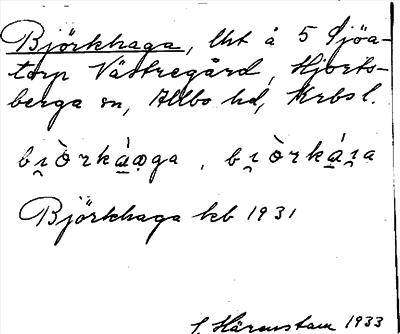 Björkhaga, lht å 5 Sjöa-
torp Västregård, Hjorts-
berga sn, Allbo hd, Krbsl.
bi̯òrká̱ǫga, bi̯òrká̱i̯a
Björkhaga kb 1931
S. Härenstam 1933